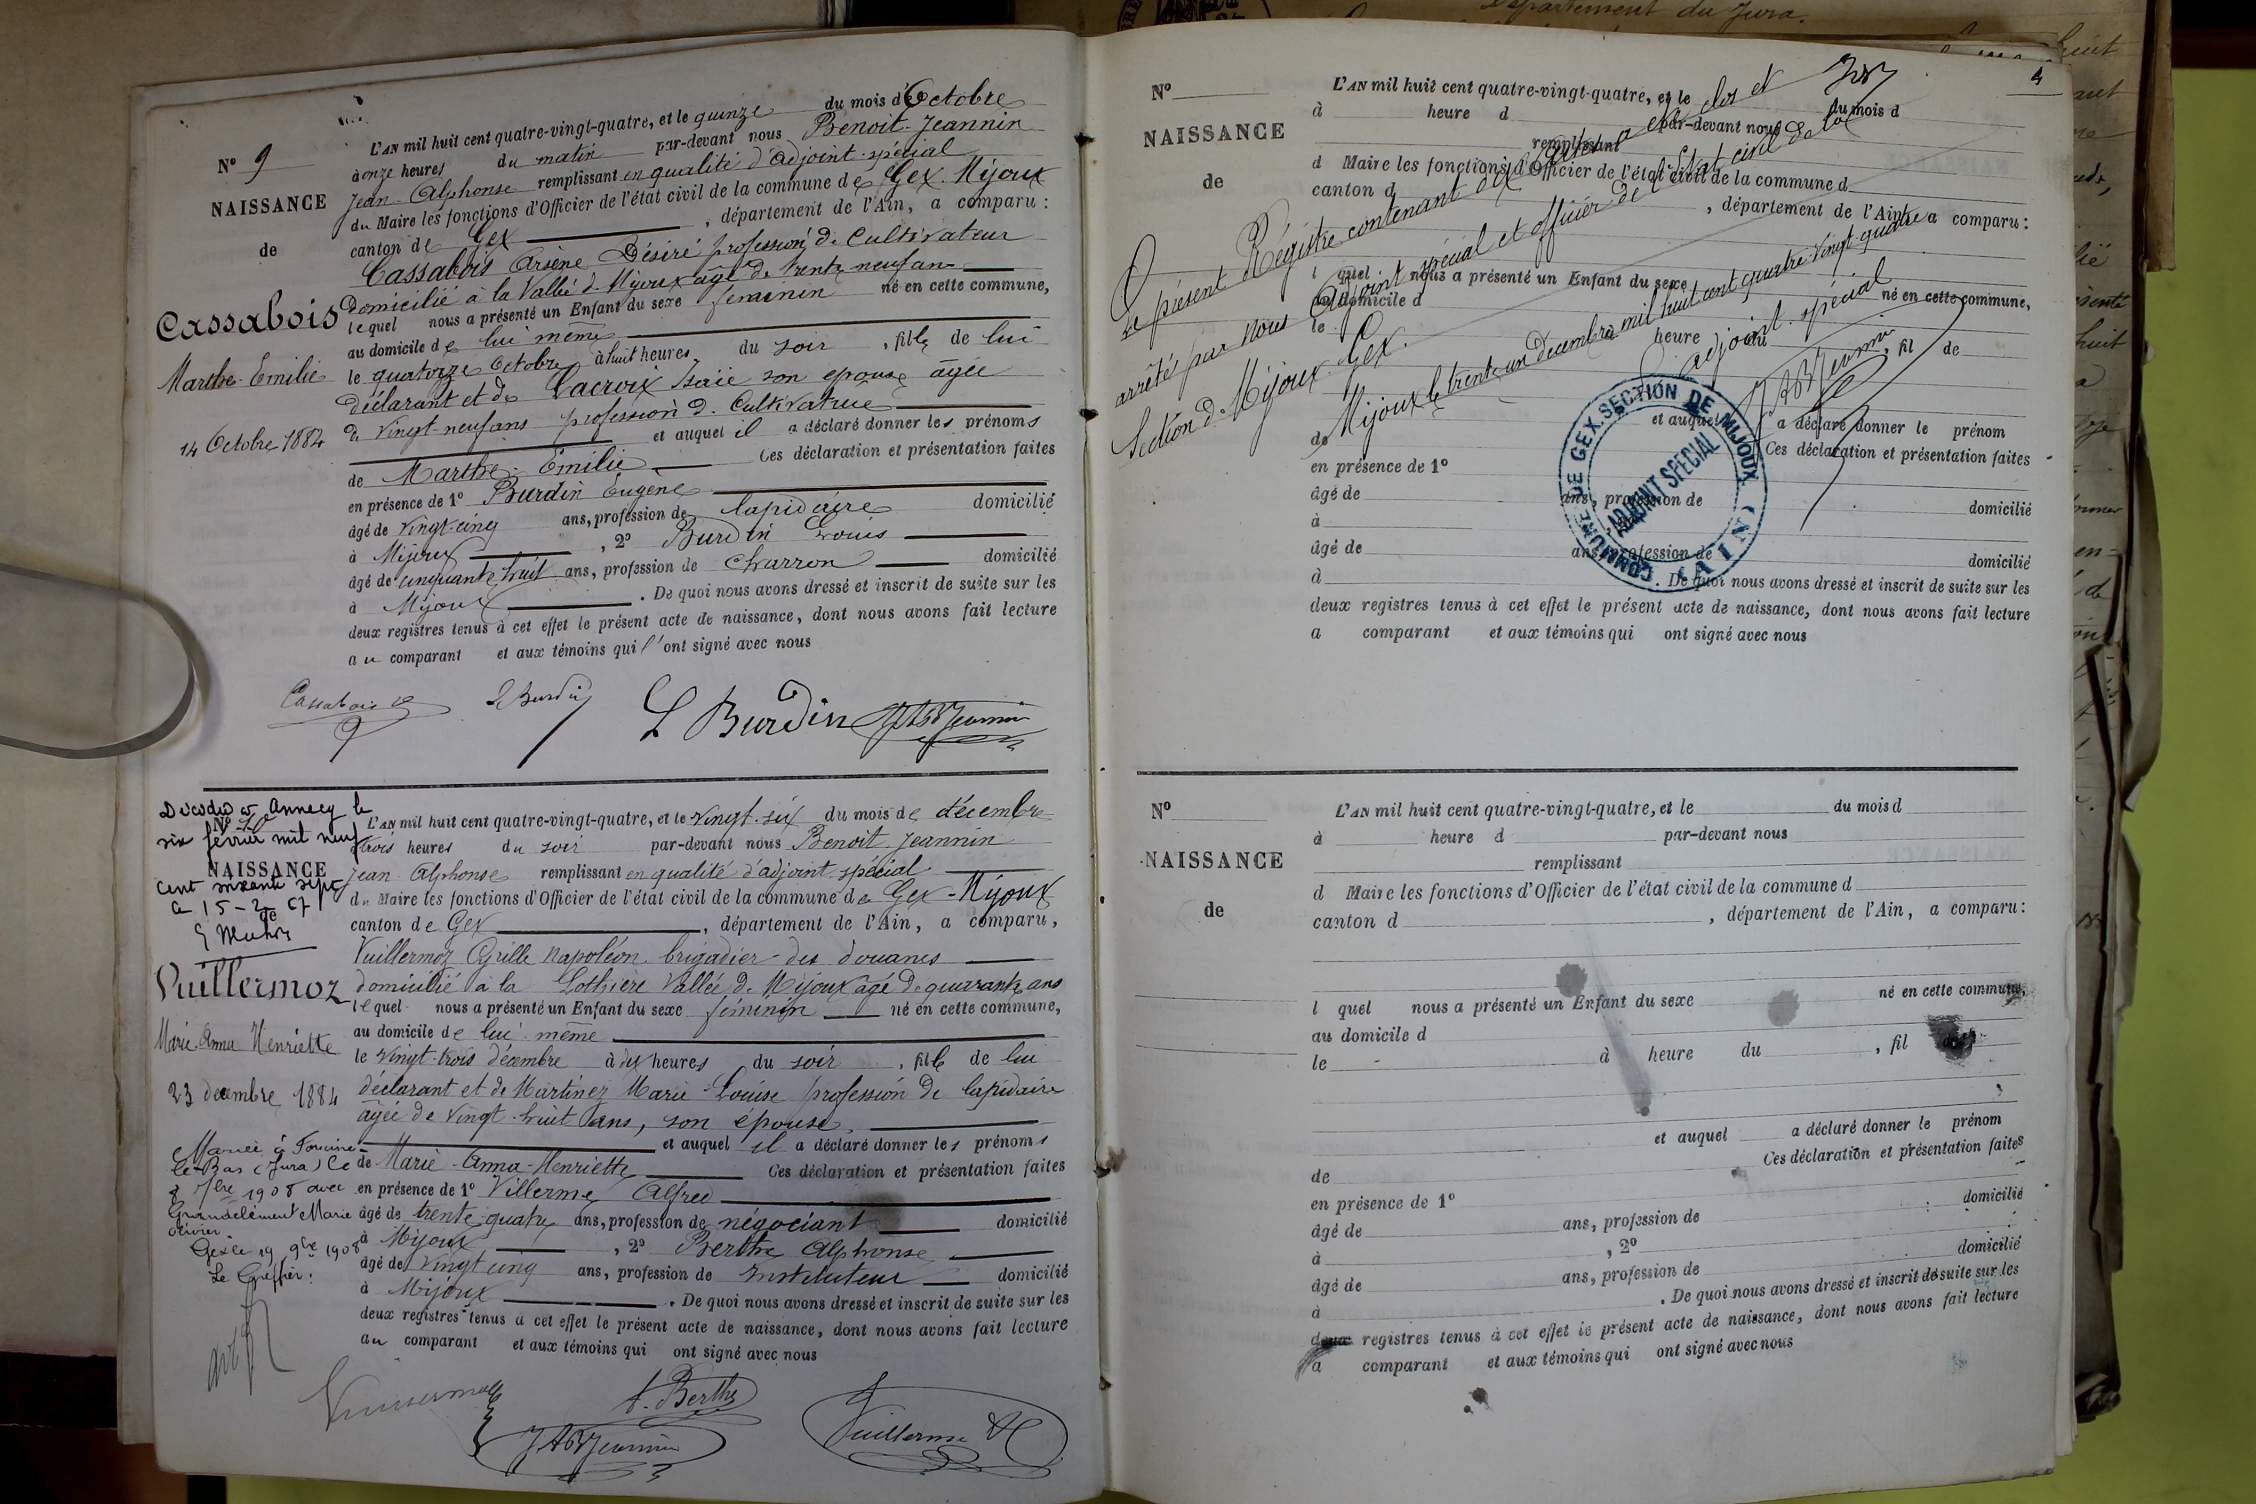 Département du Jura.
L'AN mil huit cent quatre-vingt-quatre, et le quinze du mois de Octobre
à onze heures du matin par-devant nous Benoit-Jeannin
Jean Alphonse remplissant en qualité d'adjoint spécial
du Maire les fonctions d'Officier de l'état civil de la commune de Gex-Mijoux
canton de Gex, département de l'Ain, a comparu:
Cassabois Arsène Désiré profession de Cultivateur
Domicilié à la Vallée de Mijoux agé de trente neuf ans
lequel nous a présenté un Enfant du sexe féminin né en cette commune,
au domicile de lui même
le quatorze Octobre à huit heures du soir, fille de lui
déclarant et de Lacroix Isaïe son épouse âgée
de vingt-neuf ans profession de Cultivatrice
et auquel il a déclaré donner les prénoms
de Marthe-Émilie Ces déclaration et présentation faites
en présence de 1° Burdin Eugène
âgé de vingt-cinq ans, profession de lapidaire domicilié
à Mijoux, 2° Burdin Louis
âgé de cinquante huit ans, profession de charron domicilié
à Mijoux. De quoi nous avons dressé et inscrit de suite sur les
deux registres tenus à cet effet le présent acte de naissance, dont nous avons fait lecture
au comparant et aux témoins qui l'ont signé avec nous
N° 9
NAISSANCE
de
Cassabois
Marthe-Emilie
14 Octobre 1884
Cassabois
E Burdin
L Burdin
JABJeannin
Décédée à Annecy le
six février mil neuf
cent soixante sept
15-2-67
N° 10
NAISSANCE
de
Vuillermoz
Marie Anna Henriette
23 décembre 1884
Mariée à Foncine-
le-Bas (Jura) le
1908 avec
Grandclément Marie
Olivier.
Gex le 19 9bre 1908
Le Greffier:
L'AN mil huit cent quatre-vingt-quatre, et le vingt-six du mois de décembre
à trois heures du soir par-devant nous Benoit-Jeannin
Jean Alphonse remplissant en qualité d'adjoint spécial
du Maire les fonctions d'Officier de l'état civil de la commune de Gex-Mijoux
canton de Gex, département de l'Ain, a comparu,
Vuillermoz Cyrille Napoléon, brigadier des douanes
domicilié à la Vallée de Mijoux agé de quarante ans
lequel nous a présenté un Enfant du sexe féminin né en cette commune,
au domicile de lui même
le vingt-trois décembre à dix heures du soir, fille de lui
déclarant et de Martinez Marie-Louise profession de lapidaire
âgée de vingt-huit ans, son épouse,
et auquel il a déclaré donner les prénoms
de Marie-Anna-Henriette Ces déclaration et présentation faites
en présence de 1° Villerme Alfred
âgé de trente-quatre ans, profession de négociant domicilié
à Mijoux, 2° Berthe Alphonse
âgé de vingt cinq ans, profession de instituteur domicilié
à Mijoux. De quoi nous avons dressé et inscrit de suite sur les
deux registres tenus à cet effet le présent acte de naissance, dont nous avons fait lecture
au comparant et aux témoins qui ont signé avec nous
Vuillermoz
A. Berthe
JABJeannin
Vuillerme
4
N°
NAISSANCE
de
L'AN mil huit cent quatre-vingt-quatre, et le du mois d
à heure d par-devant nous
remplissant
d Maire les fonctions d'Officier de l'état civil de la commune d
canton d, département de l'Ain, a comparu:
l quel nous a présenté un Enfant du sexe né en cette commune,
au domicile d
le à heure du, fil de
et auquel a déclaré donner le prénom
de Ces déclaration et présentation faites
en présence de 1°
âgé de ans, profession de domicilié
à, 2°
âgé de ans, profession de domicilié
à. De quoi nous avons dressé et inscrit de suite sur les
deux registres tenus à cet effet le présent acte de naissance, dont nous avons fait lecture
a comparant et aux témoins qui ont signé avec nous
Le présent Régistre contenant dix actes a été clos et
arrêté par nous Adjoint spécial et officier de l'État civil de la
Section de Mijoux-Gex.
Mijoux le trente un décembre mil huit cent quatre-vingt quatre
adjoint spécial
JABJeannin
COMMUNE DE GEX. SECTION DE MIJOUX (AIN)
ADJOINT SPECIAL
N°
NAISSANCE
de
L'AN mil huit cent quatre-vingt-quatre, et le du mois d
à heure d par-devant nous
remplissant
d Maire les fonctions d'Officier de l'état civil de la commune d
canton d, département de l'Ain, a comparu:
l quel nous a présenté un Enfant du sexe né en cette commune,
au domicile d
le à heure du, fil de
et auquel a déclaré donner le prénom
de Ces déclaration et présentation faites
en présence de 1°
âgé de ans, profession de domicilié
à, 2°
âgé de ans, profession de domicilié
à. De quoi nous avons dressé et inscrit de suite sur les
deux registres tenus à cet effet le présent acte de naissance, dont nous avons fait lecture
a comparant et aux témoins qui ont signé avec nous